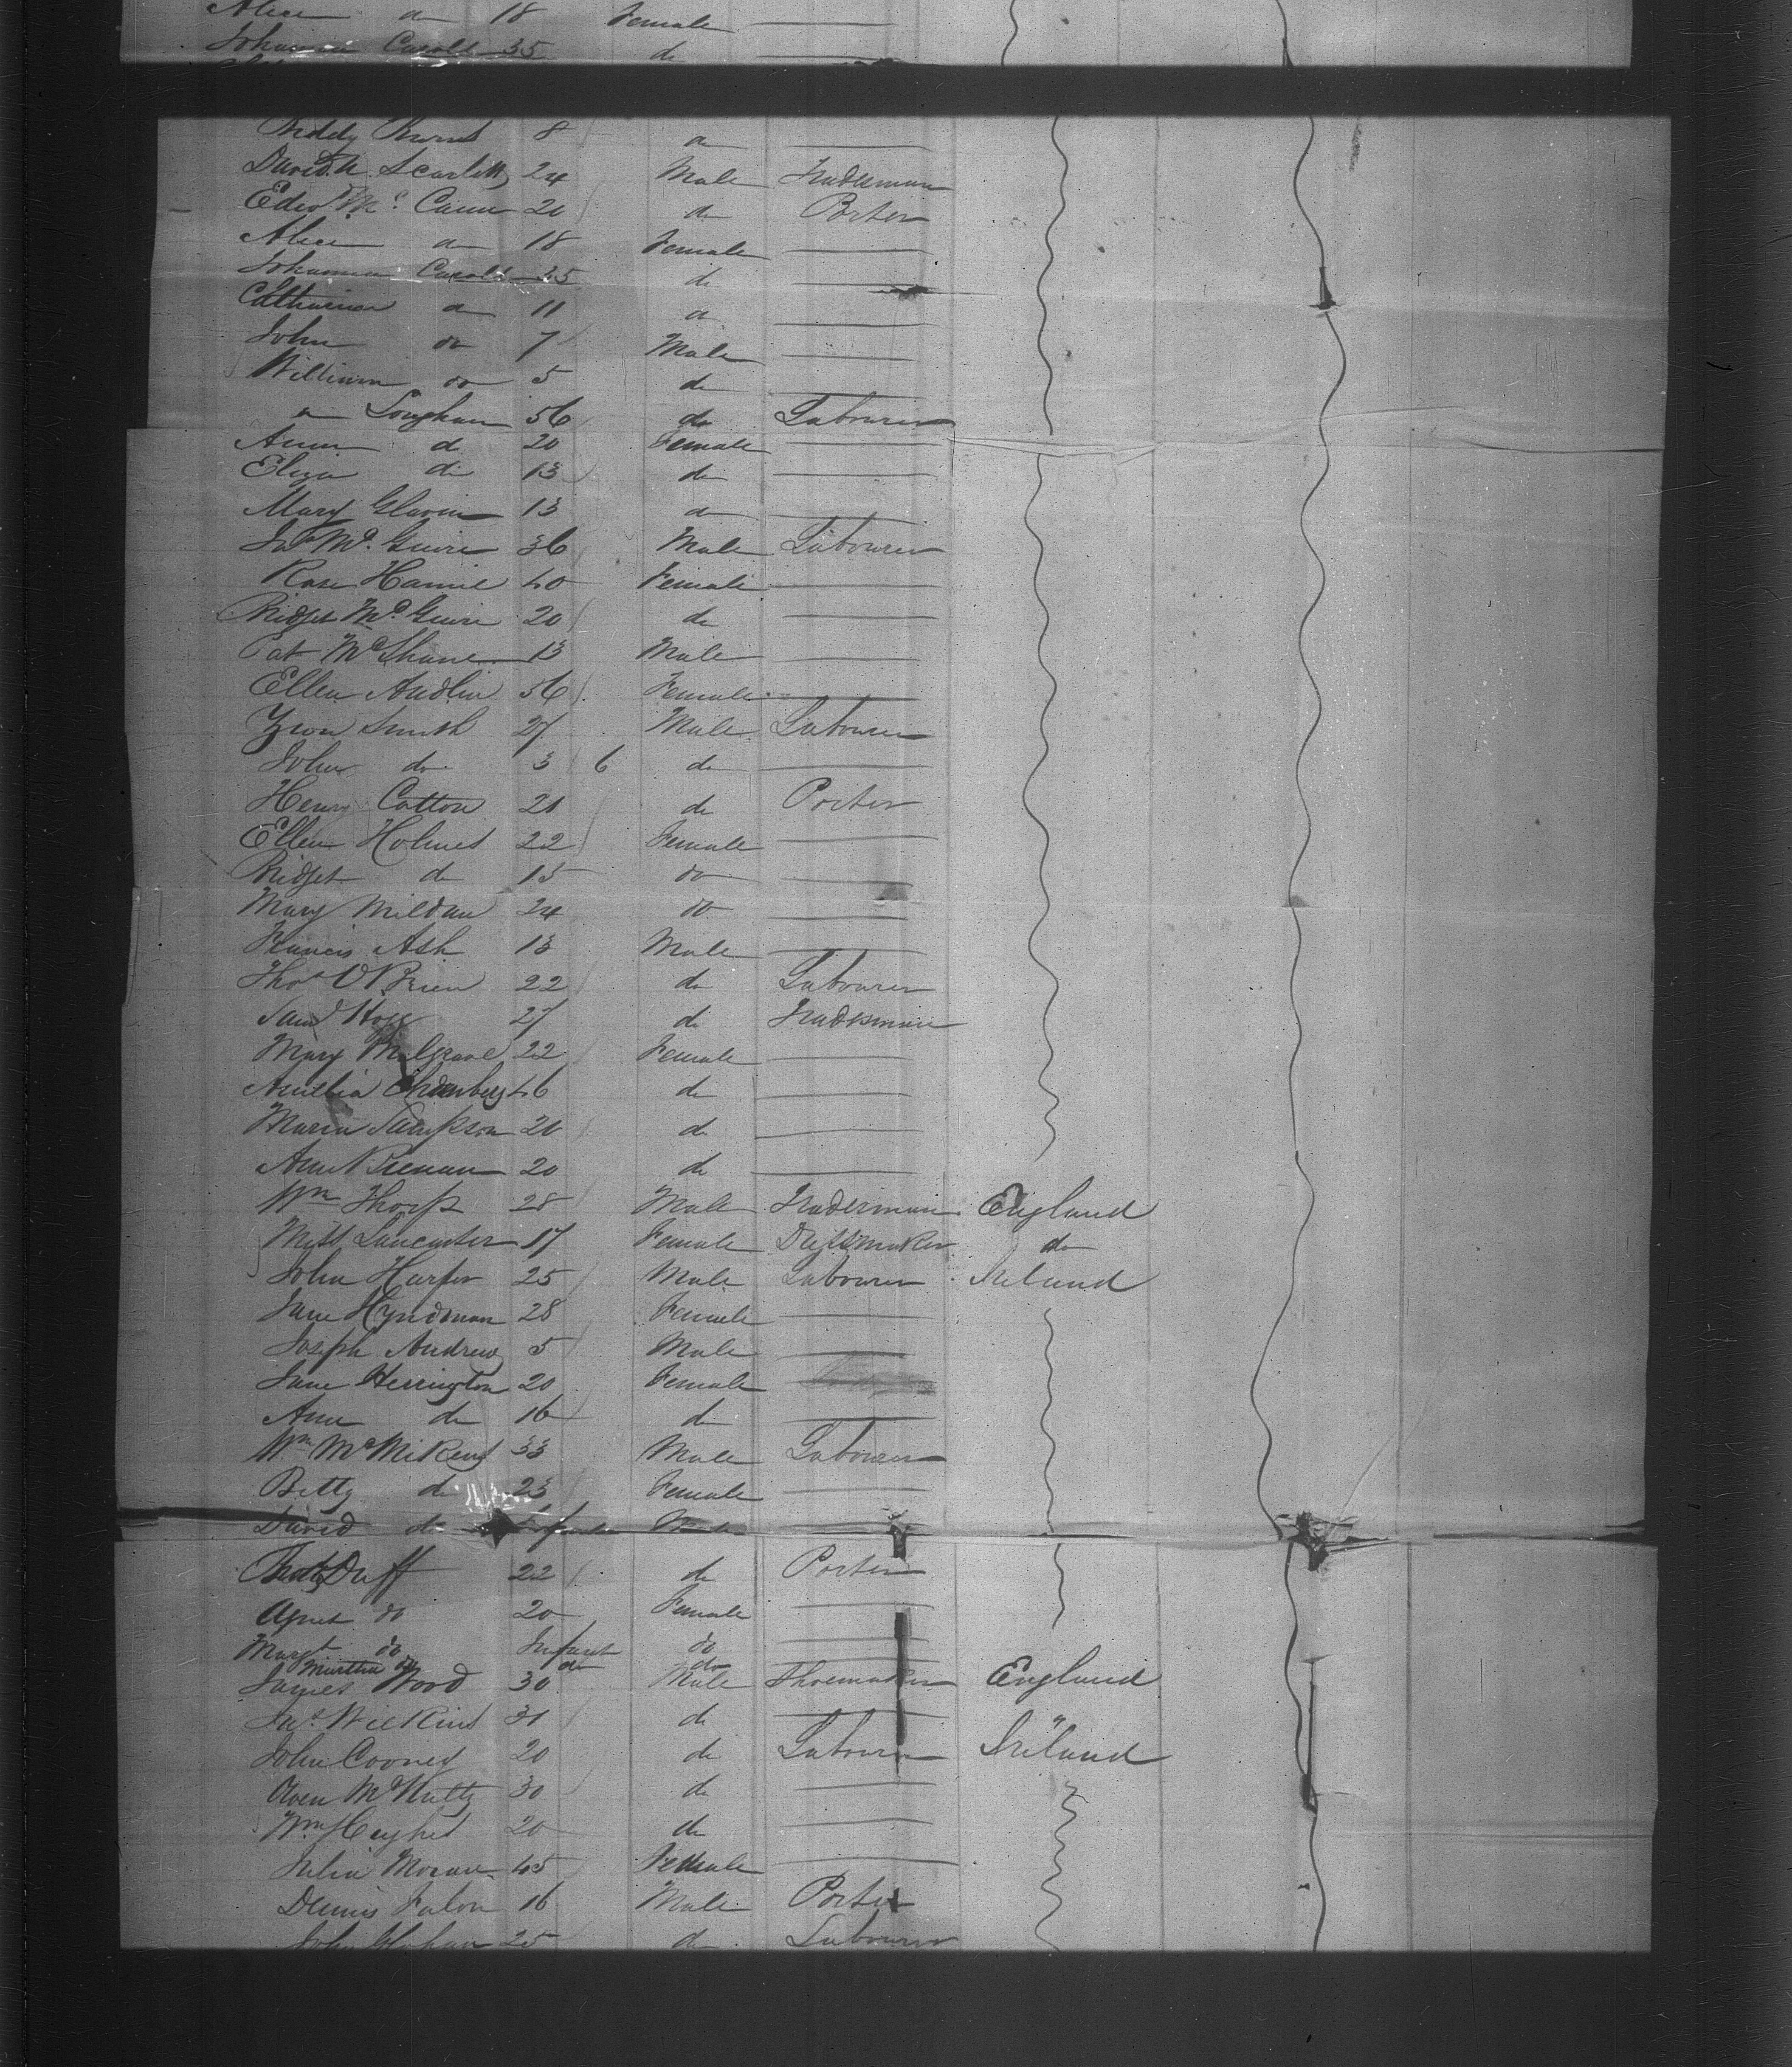 Alice do 18 Female
Johanna Carolt 35 do
Biddy Burns 8 do
David A. Scarlett 24 Male Tradesman
Edwd Mc Cann 20 do Porter
Alice do 18 Female
Johanna Carolt 35 do
Catharine do 11 do
John do 7 Male
William do 5 do
Loughan 56 do Labourer
Ann do 20 Female
Eliza do 13 do
Mary Glavin 13 do
Jno Mc Guire 36 Male Labourer
Rose Hamil 40 Female
Bridget Mc Guire 20 do
Pat McShane 13 Male
Ellen Audlin 56 Female
Smith 27 Male Labourer
John do 3 6 do
Henry Cotton 21 do Porter
Ellen Holmes 22 Female
Bridget do 15 do
Mary Mildau 24 do
Francis Ash 13 Male
Thos O'Brien 22 do Labourer
Saml Hogg 27 do Tradesman
Mary 22 Female
46 do
Maria Sampson 20 do
Ann 20 do
Wm Thorp 28 Male Tradesman England
Miss Lancaster 17 Female Dressmaker do
John Harper 25 Male Labourer Ireland
Jane Hyndman 28 Female
Joseph Andrew 5 Male
Jane Herrington 20 Female
Ann do 16 do
Wm 33 Male Labourer
Betty do 23 Female
David do Infant Male
Duff 22 do Porter
Agnes do 20 Female
Margt do Infant do
Martha do do do
James Wood 30 Male Shoemaker England
Jas Wilkins 31 do "
John Cooney 20 do Labourer Ireland
Owen McNulty 30 do
Wm Hughes 20 do
Julia Moran 45 Female
Dennis Falon 16 Male Porter
John 25 do Labourer